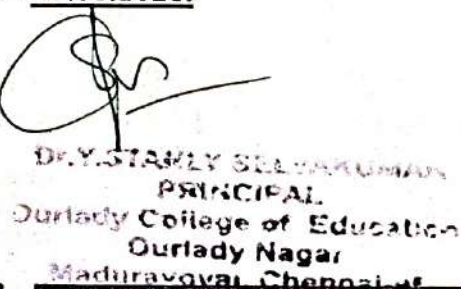 Dr.Y.STANLY SELVAKUMAR
PRINCIPAL
Ourlady College of Education
Ourlady Nagar
Maduravoyal Chennai